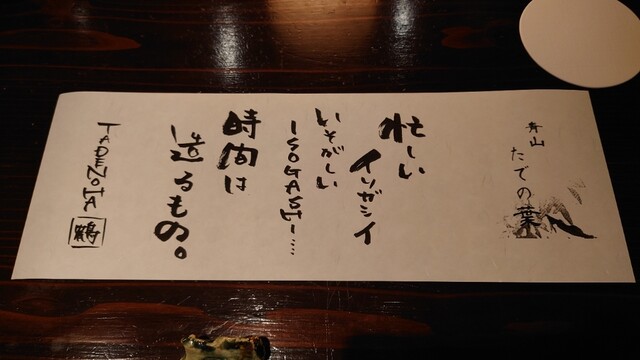 青山
たでの葉
忙しい
イソガシイ
いそがしい
ISOGASHI……
時間は
造るもの。
TADENOHA
鶴